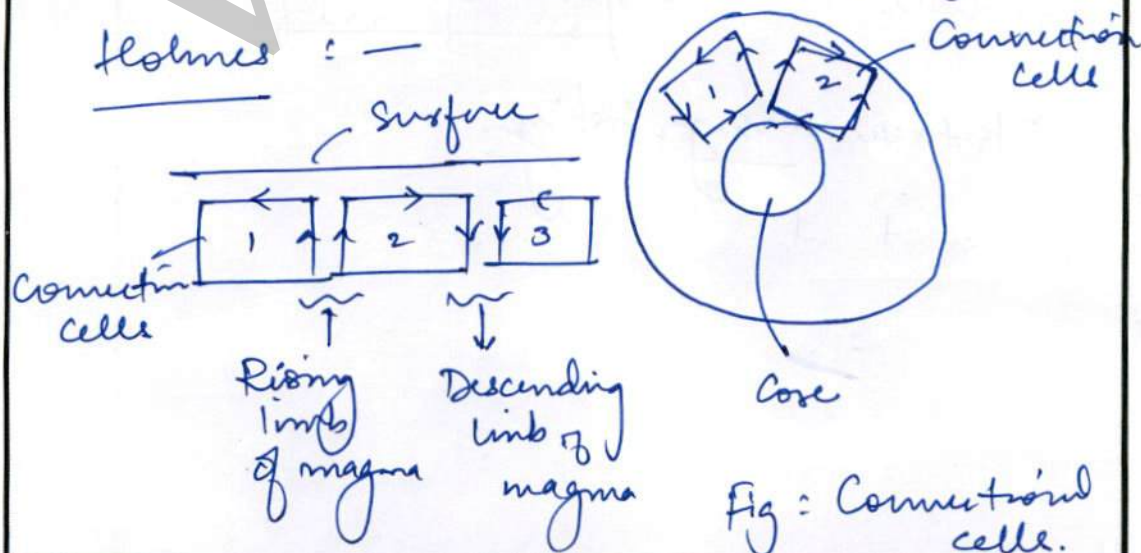 Holmes : —
Surface
1 2 3
Convection
cells
Rising
limb
of magma
Descending
limb of
magma
1 2
Convection
cells
Core
Fig : Convectional
cells.